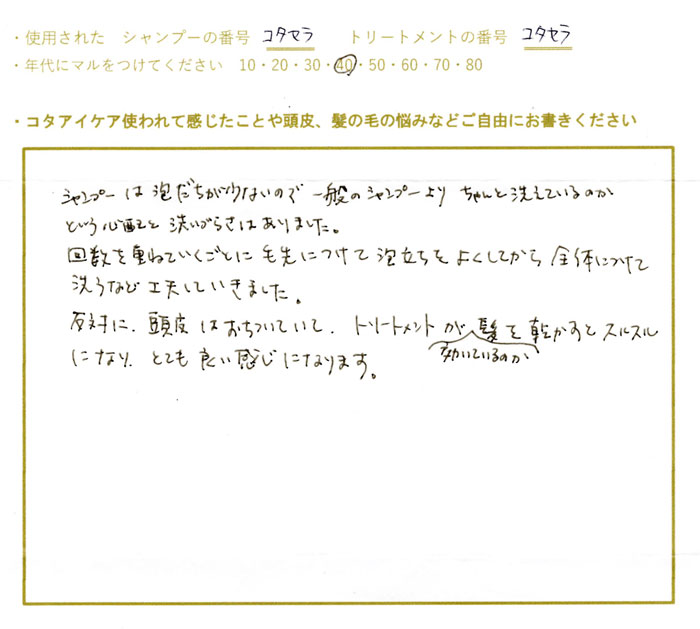 ・使用された シャンプーの番号 コタセラ トリートメントの番号 コタセラ
・年代にマルをつけてください 10・20・30・40・50・60・70・80
・コタアイケア使われて感じたことや頭皮、髪の毛の悩みなどご自由にお書きください
シャンプーは泡だちが少ないので一般のシャンプーより ちゃんと洗えているのか
という心配と 洗いづらさはありました。
回数を重ねていくごとに毛先につけて泡立ちをよくしてから全体につけて
洗うなど工夫していきました。
反対に、頭皮はおちついていて、トリートメントが髪を乾かすとスルスル
効いているのか
になり、とても良い感じになります。